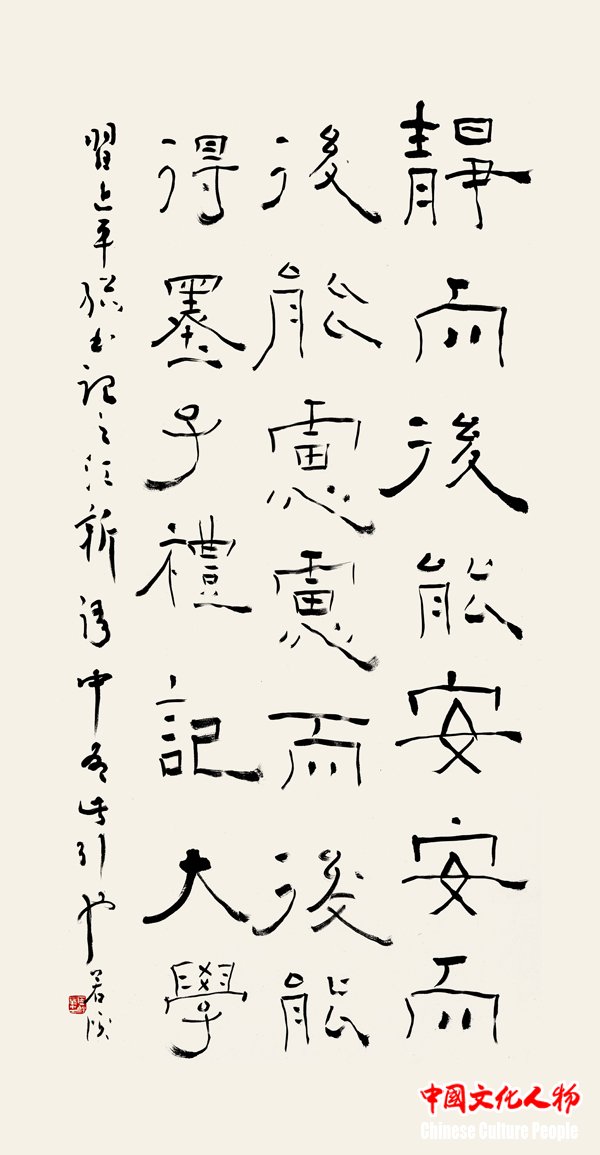 靜而後能安安而
後能慮慮而後能
得墨子禮記大學
習近平總書記之江新語中有此引也 若
中國文化人物
Chinese Culture People